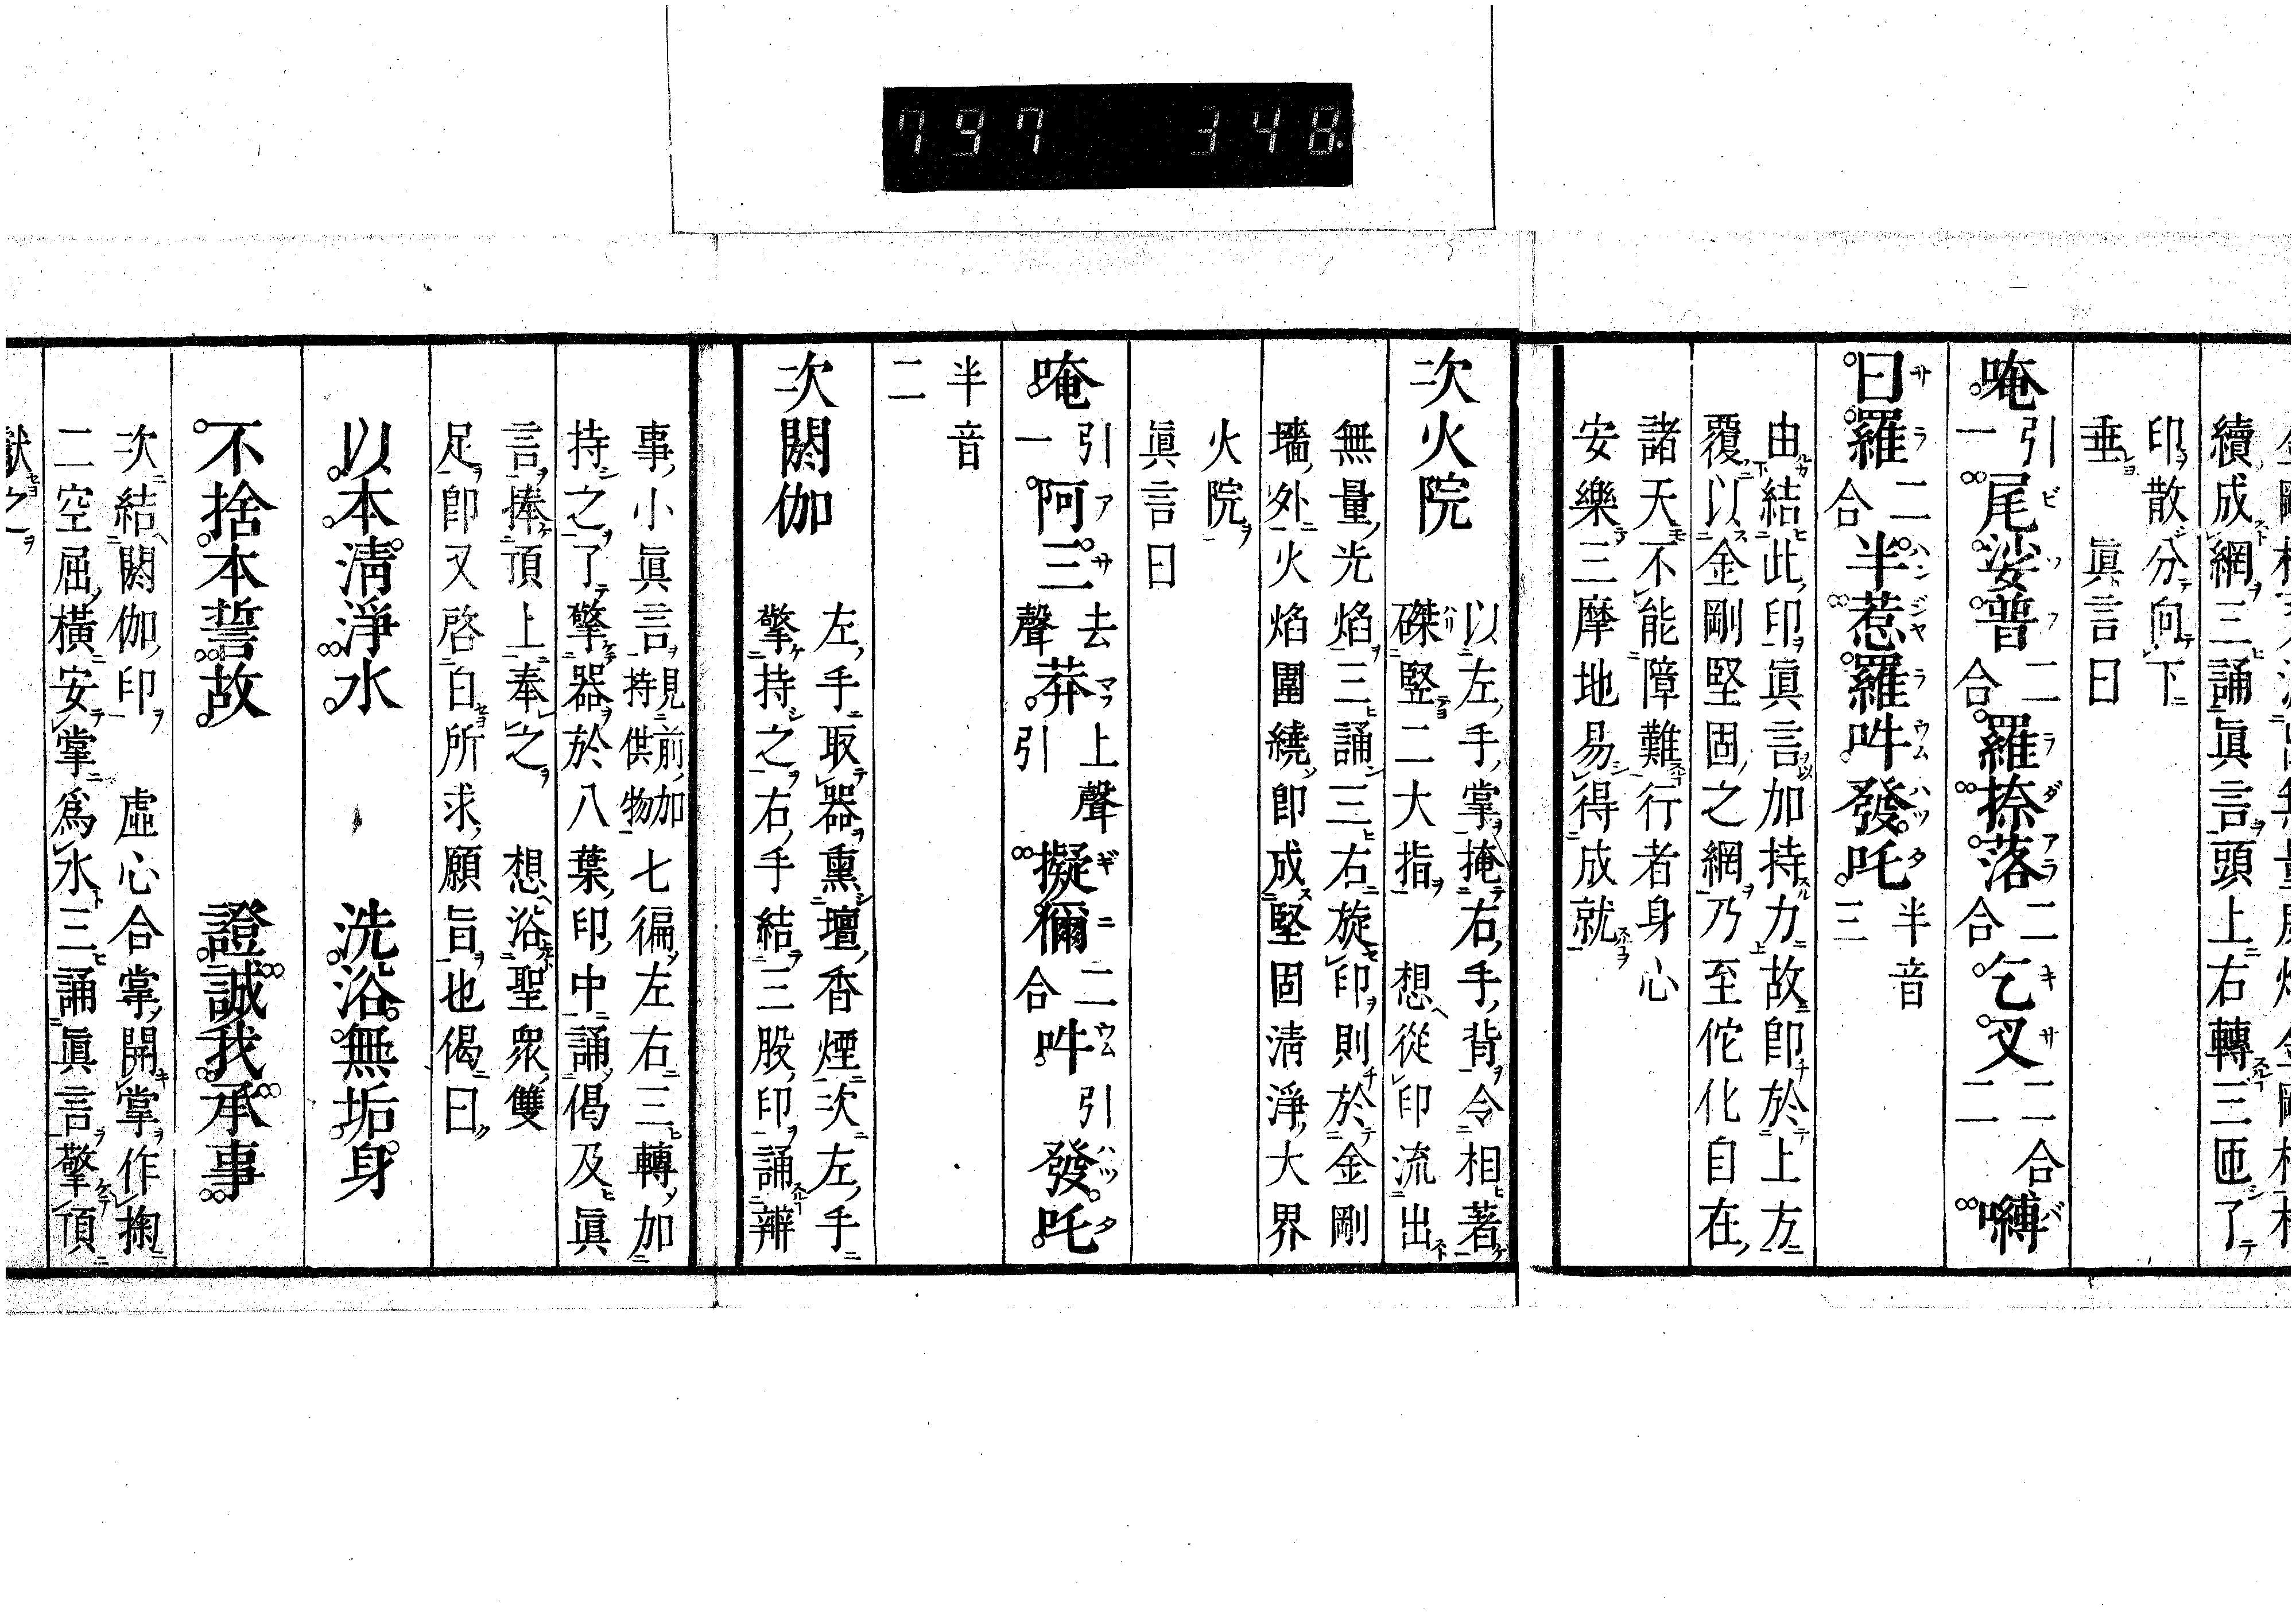 797 348
續成網三誦眞言頭上右轉三匝了
印散分向下
垂 眞言曰
唵引一尾娑普二合羅捺落二合乞叉二合二嚩
曰羅二合半惹羅吽發吒半音三
由結此印眞言加持力故卽於上方
覆以金剛堅固之網乃至佗化自在
諸天不能障難行者身心
安樂三摩地易得成就
次火院
以左手掌掩右手背令相著
磔竪二大指 想從印流出
無量光焰三誦三右旋印則於金剛
墻外火焰圍繞卽成堅固清淨大界
火院
眞言曰
唵引一阿三去聲莽上聲引擬彌二合吽引發吒
半音
二
次閼伽
左手取器熏壇香煙次左手
擎持之右手結三股印誦辦
事小眞言見前加持供物七徧左右三轉加
持之了擎器於八葉印中誦偈及眞
言捧頂上奉之 想浴聖衆雙
足卽又啓白所求願旨也偈曰
以本清淨水 洗浴無垢身
不捨本誓故 證誠我承事
次結閼伽印 虛心合掌開掌作掬
二空屈橫安掌爲水三誦眞言擎頂
獻之